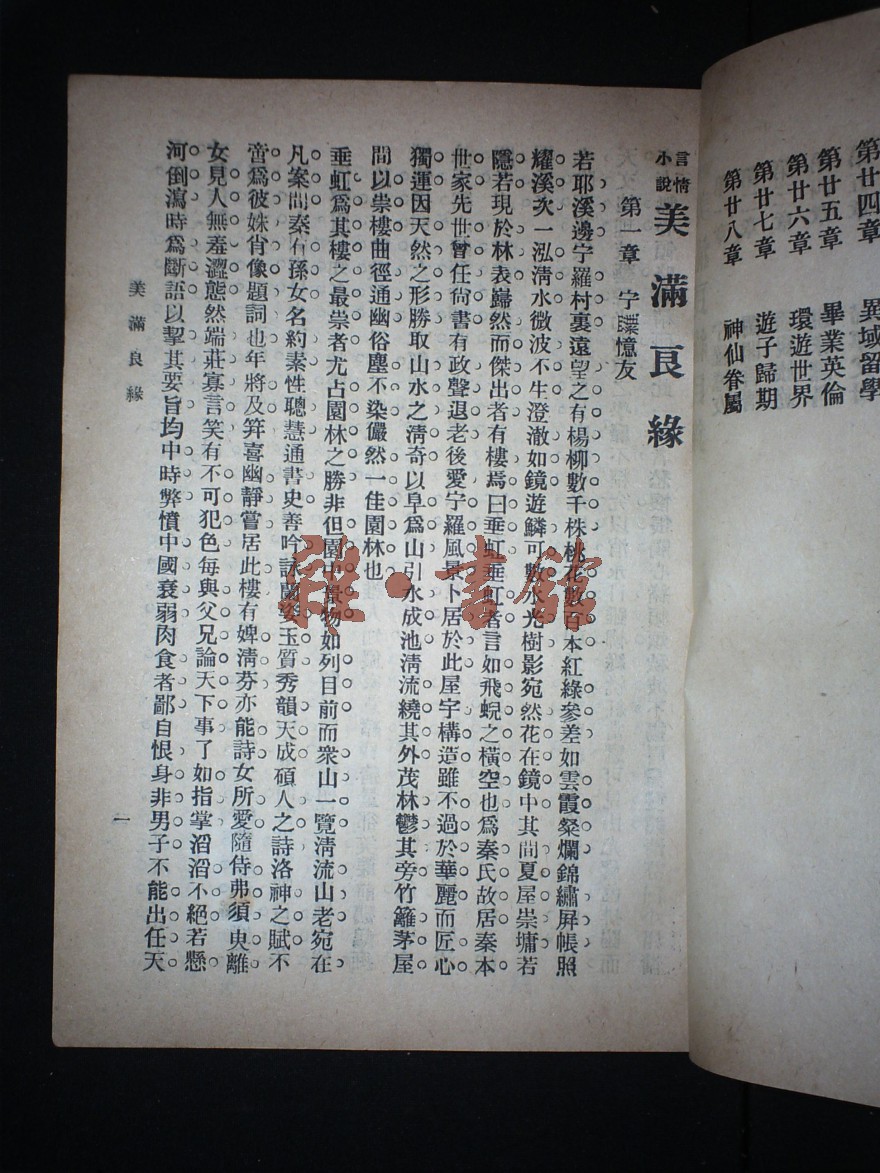 第廿四章　異域留學
第廿五章　畢業英倫
第廿六章　環遊世界
第廿七章　遊子歸期
第廿八章　神仙眷屬
言情小說　美滿良緣
第一章　憶友
若耶溪邊宁羅村裏遠望之有楊柳數千株桃花數百本紅綠參差如雲霞粲爛錦繡屏帳照
耀溪次一泓清水微波不生澄澈如鏡遊鱗可數水光樹影宛然花在鏡中其間夏屋崇墉若
隱若現於林表巋然而傑出者有樓焉曰垂虹垂虹者言如飛蜺之橫空也為秦氏故居秦本
世家先世曾任尙書有政聲退老後愛宁羅風景卜居於此屋宇構造雖不過於華麗而匠心
獨運因天然之形勝取山水之清奇以阜為山引水成池清流繞其外茂林鬱其旁竹籬茅屋
間以崇樓曲徑通幽俗塵不染儼然一佳園林也
垂虹為其樓之最崇者尤占園林之勝非但園中景物如列目前而衆山一覽清流山老宛在
凡案間秦有孫女名約素性聰慧通書史善吟詠蘭姿玉質秀韻天成碩人之詩洛神之賦不
啻為彼姝肖像題詞也年將及笄喜幽靜嘗居此樓有婢清芬亦能詩女所愛隨侍弗須臾離
女見人無羞澀態然端莊寡言笑有不可犯色每與父兄論天下事了如指掌滔滔不絕若懸
河倒瀉時為斷語以挈其要旨均中時弊憤中國衰弱肉食者鄙自恨身非男子不能出任天
美滿良緣
一
雜·書館